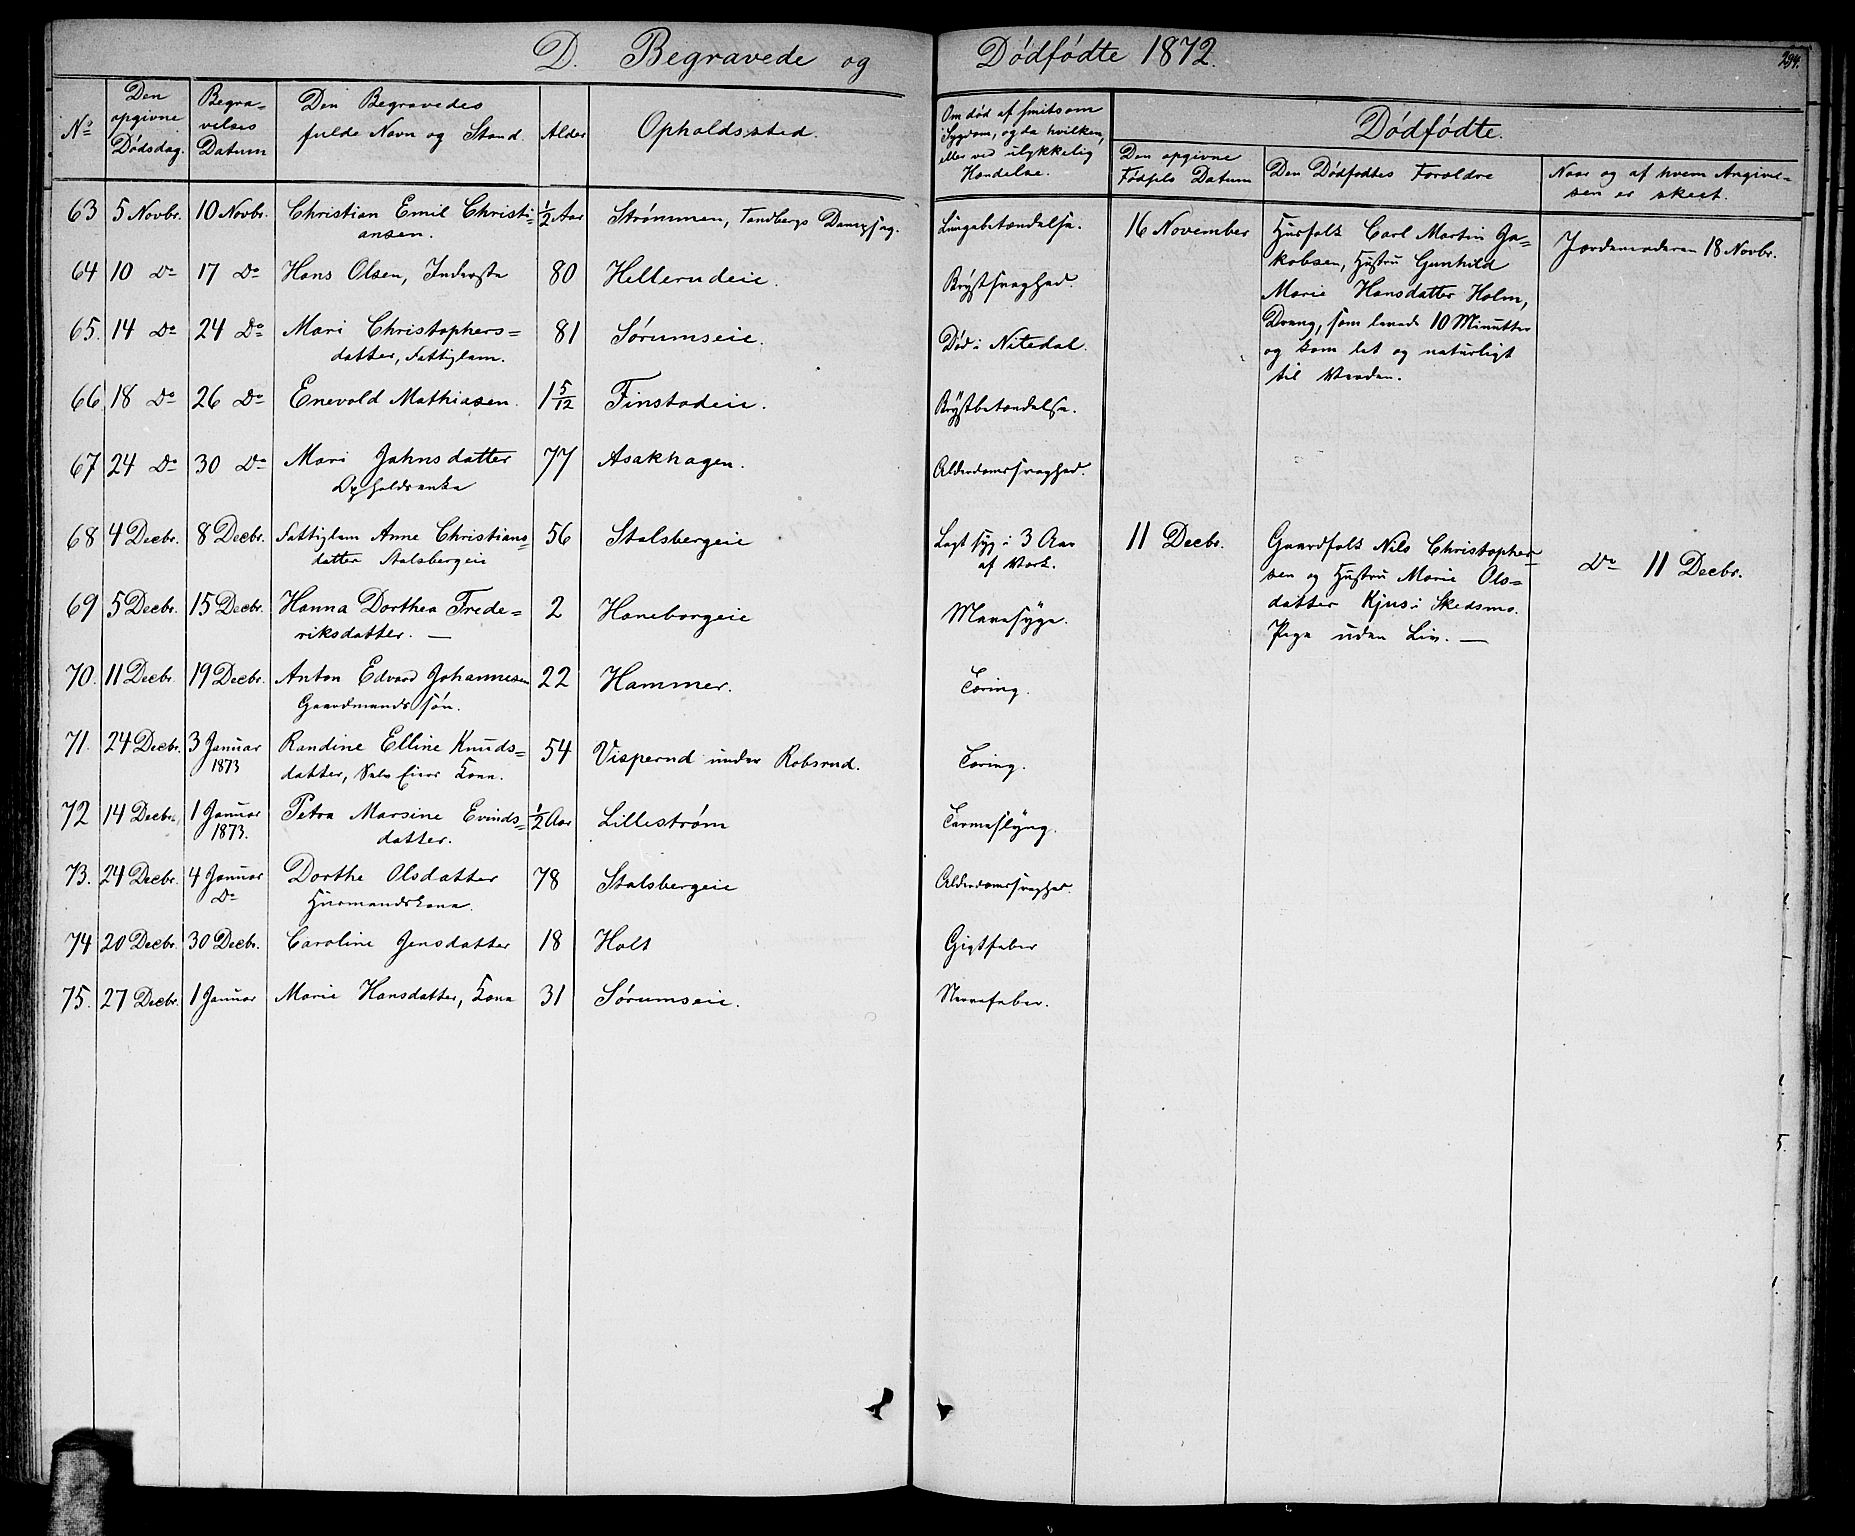 D. Begravede og Dødfødte 1872.
294.
No
Den opgivne Dødsdag.
Begravelses Datum
Den Begravedes fulde Navn og Stand.
Alder
Opholdssted.
Om død af smitsom Sygdom, og da hvilken, eller ved ulykkelig Hendelse.
Dødfødte.
Den opgivne Fødsels Datum
Den Dødfødtes Forældre
Naar og af hvem Angivelsen er skeet.
63 5 Novbr. 10 Novbr. Christian Emil Christi= ½ Aar Strømmen, Tandbergs Dampsag. Lungebetændelse.
ansen.
64 10 Do 17 Do Hans Olsen, Inderste 80 Hellerudeie. Brystsvaghed.
65. 14 Do 24 Do Mari Christophers= 81 Sørumseie. Død i Nitedal.
datter, Fattiglem.
66 18 Do 26 Do Enevold Mathiasen. 1 5/12 Finstadeie. Brystbetændelse.
67 24 Do 30 Do Mari Jahnsdatter 77 Asakhagen. Alderdomssvaghed.
Opholdsenke
68 4 Decbr. 8 Decbr. Fattiglem Anne Christians= 56 Stalsbergeie Lagt syg i 3 Aar
datter Stalsbergeie af Værk.
69 5 Decbr. 15 Decbr. Hanna Dorthea Frede= 2 Haneborgeie Mavesyge.
riksdatter. —
70. 11 Decbr. 19 Decbr. Anton Edvard Johannesen 22 Hammer. Tæring.
Gaardmands søn.
71. 24 Decbr. 3 Januar Randine Elline Knuds= 54 Visperud under Robsrud. Tæring.
1873 datter, Selveiers Kone.
72 14 Decbr. 1 Januar Petra Marsine Evinds= ½ Aar Lillestrøm Tarmeslyng.
1873. datter.
73. 24 Decbr. 4 Januar Dorthe Olsdatter 78 Stalsbergeie Alderdomssvaghed.
Do Husmandskone.
74 20 Decbr. 30 Decbr. Caroline Jensdatter 18 Holt Gigtfeber
75. 27 Decbr. 1 Januar Marie Hansdatter, Kone 31 Sørumseie. Nervefeber.
16 November
Husfolk Carl Martin Ja=
kobsen, Hustru Gunhild
Marie Hansdatter Holm,
Dreng, som levede 10 Minutter
og kom let og naturligt
til Verden.
Jordemoderen 18 Novbr.
11 Decbr.
Gaardfolk Nils Christopher=
sen og Hustru Marie Ols=
datter Kjus i Skedsmo.
Pige uden Liv. —
Do 11 Decbr.